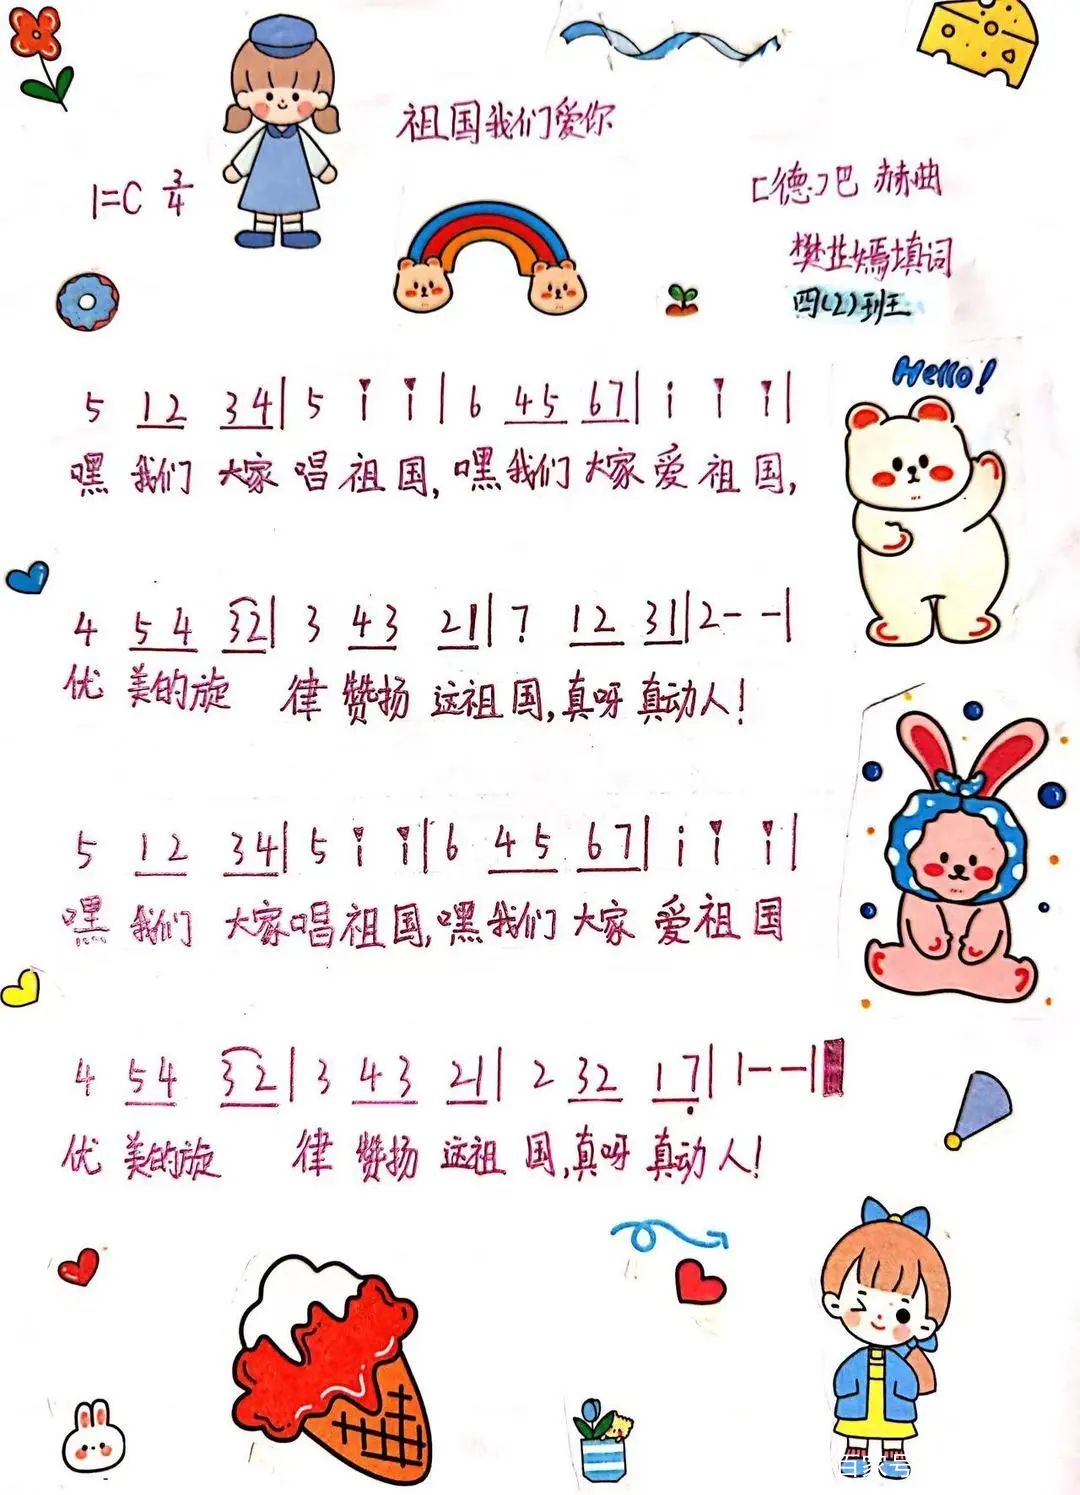 祖国我们爱你
1=C 3/4
[德]巴赫曲
樊芷嫣填词
四(2)班
Hello!
5 12 34| 5 i i| 6 45 67| i i i|
嘿 我们 大家 唱 祖 国, 嘿 我们 大家 爱 祖 国,
4 54 32| 3 43 21| 7 12 31| 2 - -|
优 美的旋 律 赞扬 这祖 国, 真呀 真动人!
5 12 34| 5 i i| 6 45 67| i i i|
嘿 我们 大家 唱 祖 国, 嘿 我们 大家 爱 祖 国
4 54 32| 3 43 21| 2 32 17̣| 1 - -||
优 美的旋 律 赞扬 这祖 国, 真呀 真动 人!